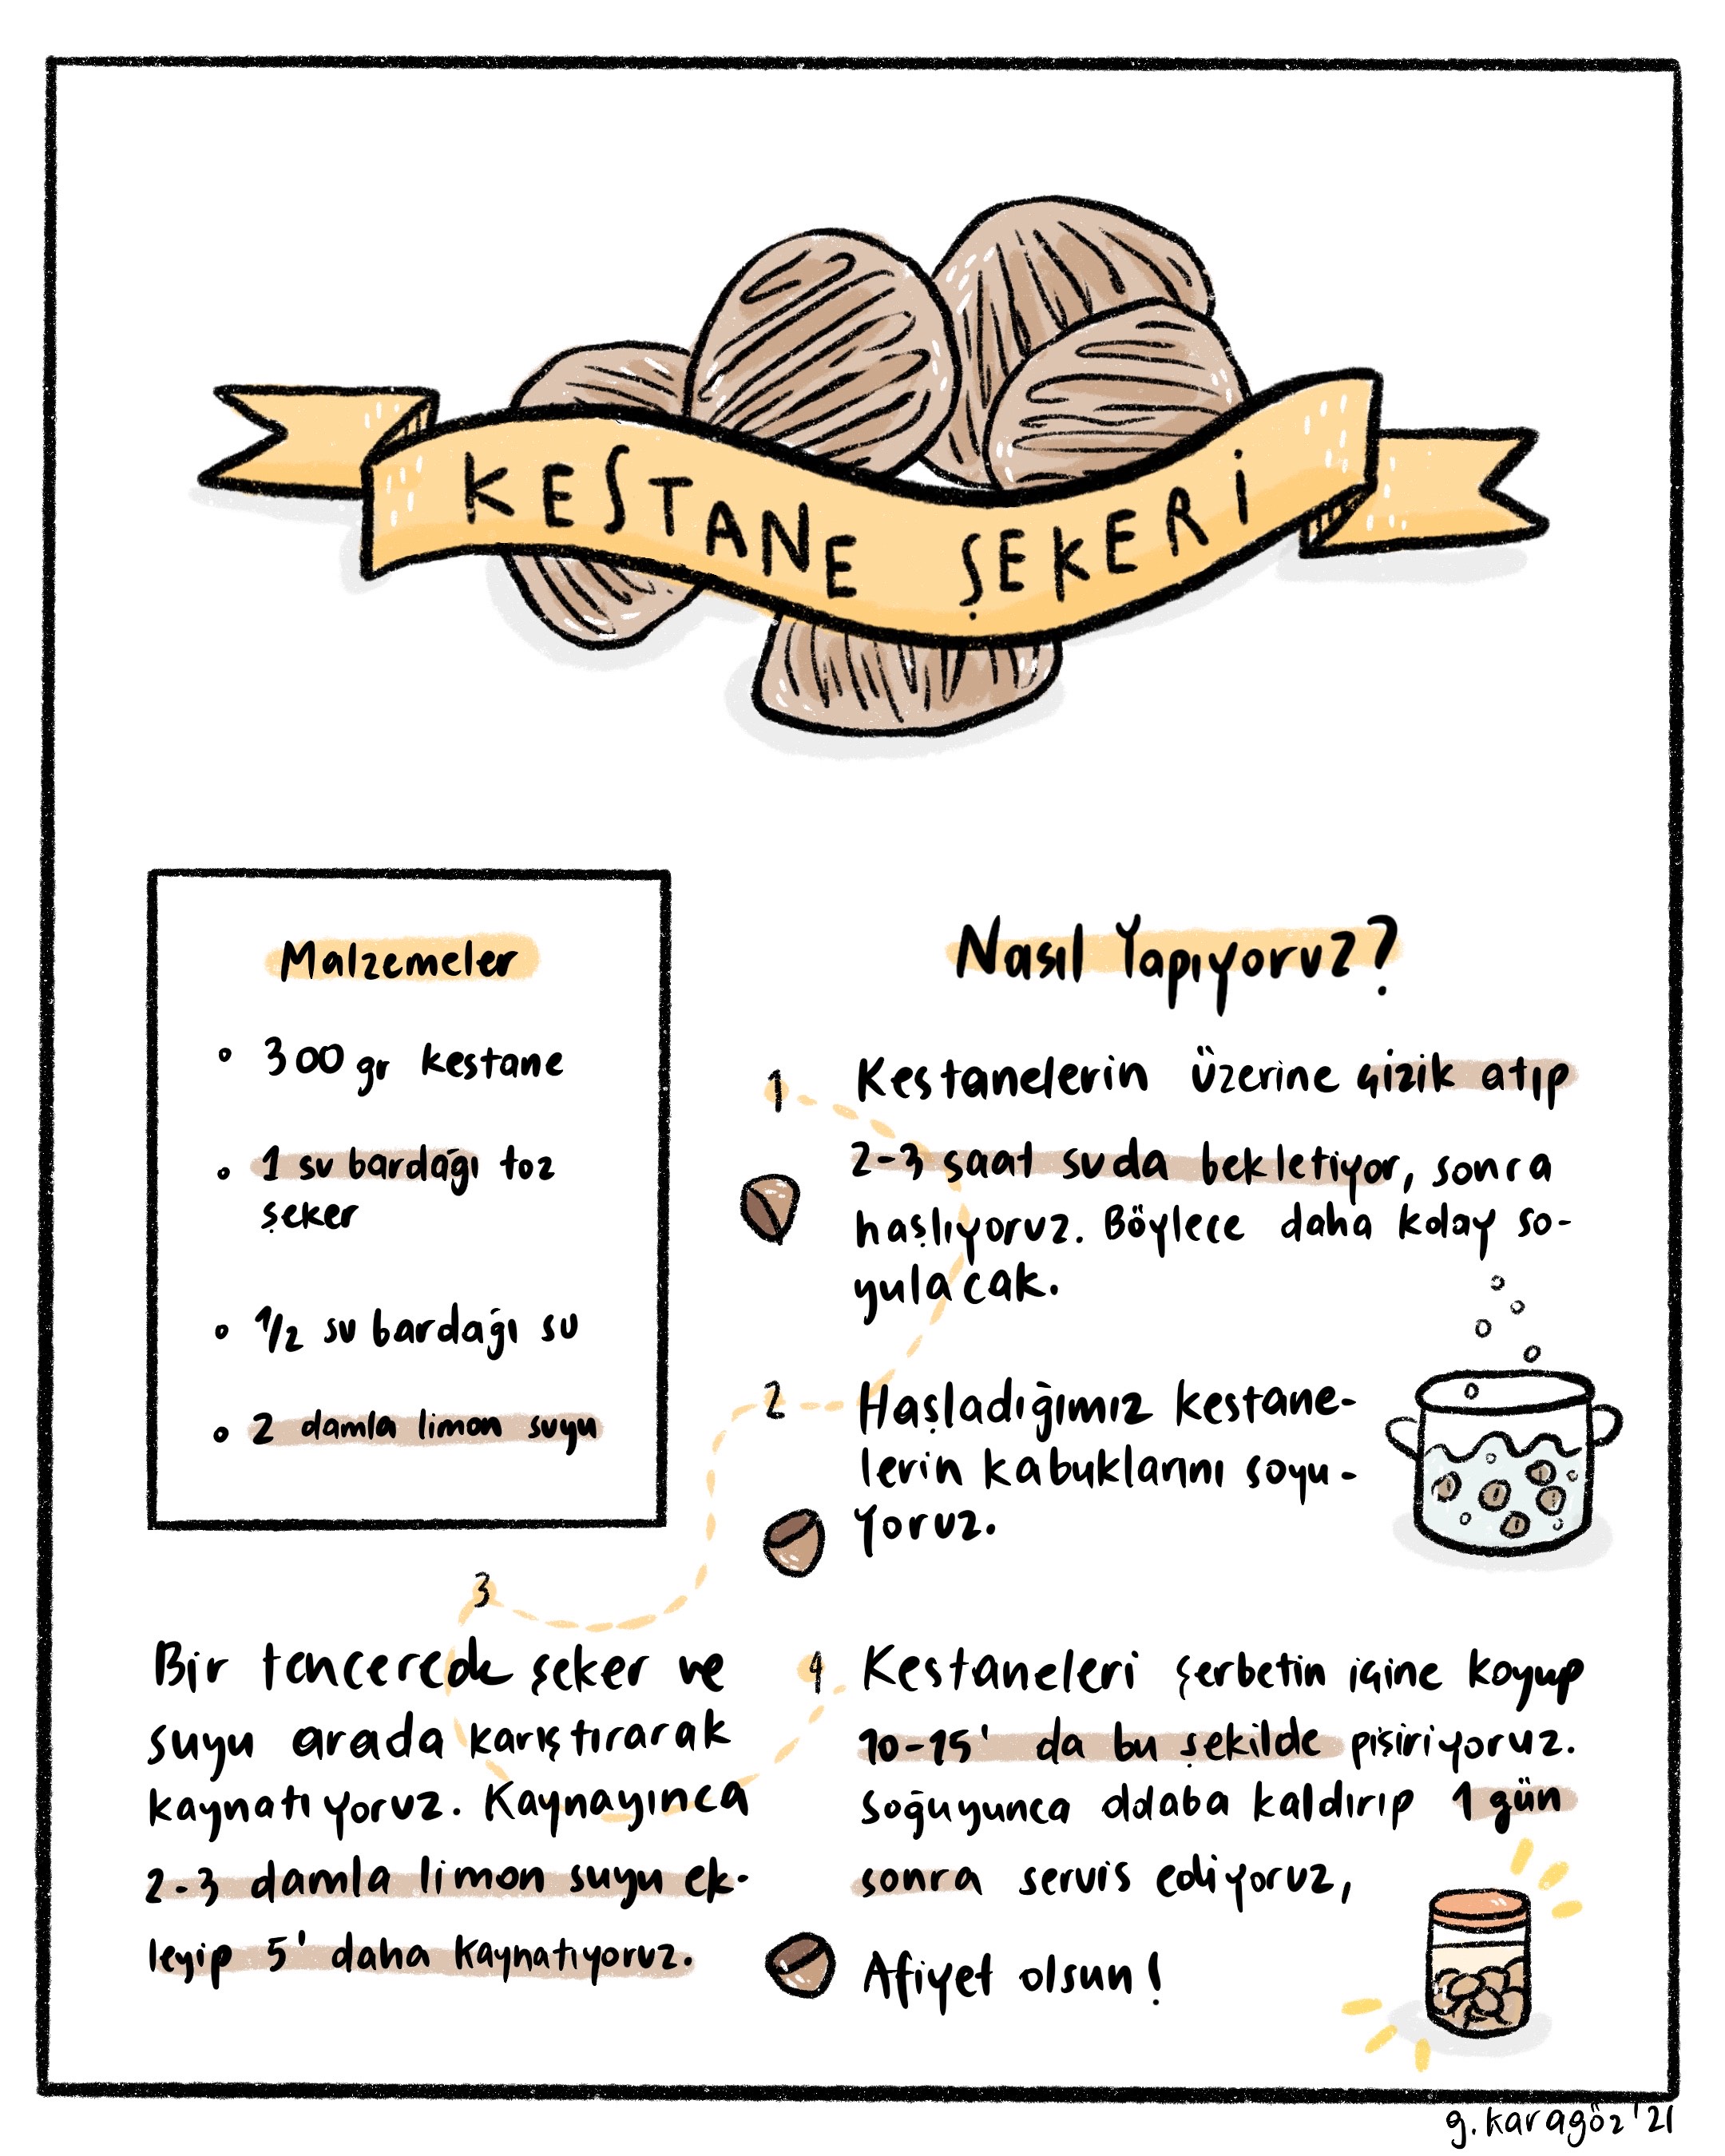 KESTANE ŞEKERİ
Malzemeler
300 gr kestane
1 su bardağı toz
şeker
1/2 su bardağı su
2 damla limon suyu
Nasıl Yapıyoruz?
1 Kestanelerin üzerine çizik atıp
2-3 saat suda bekletiyor, sonra
haşlıyoruz. Böylece daha kolay so-
yulacak.
2 Haşladığımız kestane-
lerin kabuklarını soyu-
yoruz.
3
Bir tencerede şeker ve
suyu arada karıştırarak
kaynatıyoruz. Kaynayınca
2-3 damla limon suyu ek-
leyip 5' daha kaynatıyoruz.
4 Kestaneleri şerbetin içine koyup
10-15' da bu şekilde pişiriyoruz.
soğuyunca dolaba kaldırıp 1 gün
sonra servis ediyoruz,
Afiyet olsun!
g.karagöz'21